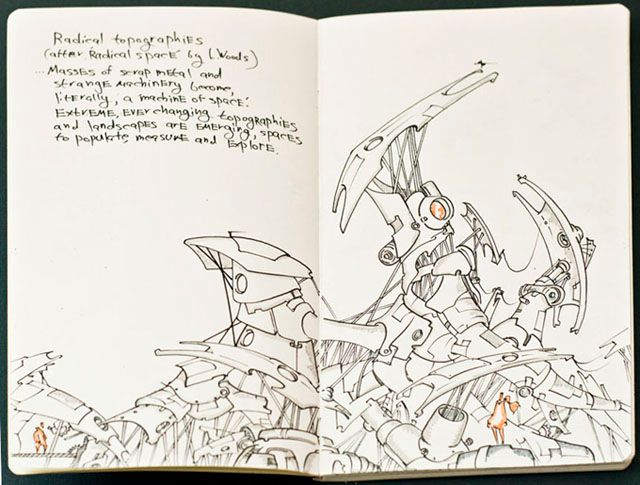 Radical topographies
(after Radical space by L.Woods)
...Masses of scrap metal and
strange machinery become,
literally, a machine of space.
Extreme, ever changing topographies
and landscapes are emerging, spaces
to populate measure and explore.